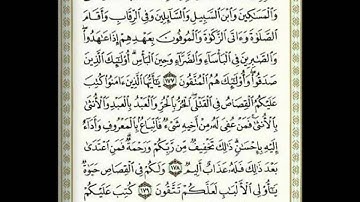 وَالْمَسَٰكِينَ وَابْنَ السَّبِيلِ وَالسَّآئِلِينَ وَفِي الرِّقَابِ وَأَقَامَ
الصَّلَوٰةَ وَءَاتَى الزَّكَوٰةَ وَالْمُوفُونَ بِعَهْدِهِمْ إِذَا عَٰهَدُوا۟
وَالصَّٰبِرِينَ فِي الْبَأْسَآءِ وَالضَّرَّآءِ وَحِينَ الْبَأْسِ أُو۟لَٰٓئِكَ الَّذِينَ
صَدَقُوا۟ وَأُو۟لَٰٓئِكَ هُمُ الْمُتَّقُونَ ١٧٧ يَٰٓأَيُّهَا الَّذِينَ ءَامَنُوا۟ كُتِبَ
عَلَيْكُمُ الْقِصَاصُ فِي الْقَتْلَى الْحُرُّ بِالْحُرِّ وَالْعَبْدُ بِالْعَبْدِ وَالْأُنثَىٰ
بِالْأُنثَىٰ فَمَنْ عُفِيَ لَهُۥ مِنْ أَخِيهِ شَيْءٌ فَاتِّبَاعٌۢ بِالْمَعْرُوفِ وَأَدَآءٌ
إِلَيْهِ بِإِحْسَٰنٍ ذَٰلِكَ تَخْفِيفٌ مِّن رَّبِّكُمْ وَرَحْمَةٌ فَمَنِ اعْتَدَىٰ
بَعْدَ ذَٰلِكَ فَلَهُۥ عَذَابٌ أَلِيمٌ ١٧٨ وَلَكُمْ فِي الْقِصَاصِ حَيَوٰةٌ
يَٰٓأُو۟لِي الْأَلْبَٰبِ لَعَلَّكُمْ تَتَّقُونَ ١٧٩ كُتِبَ عَلَيْكُمْ